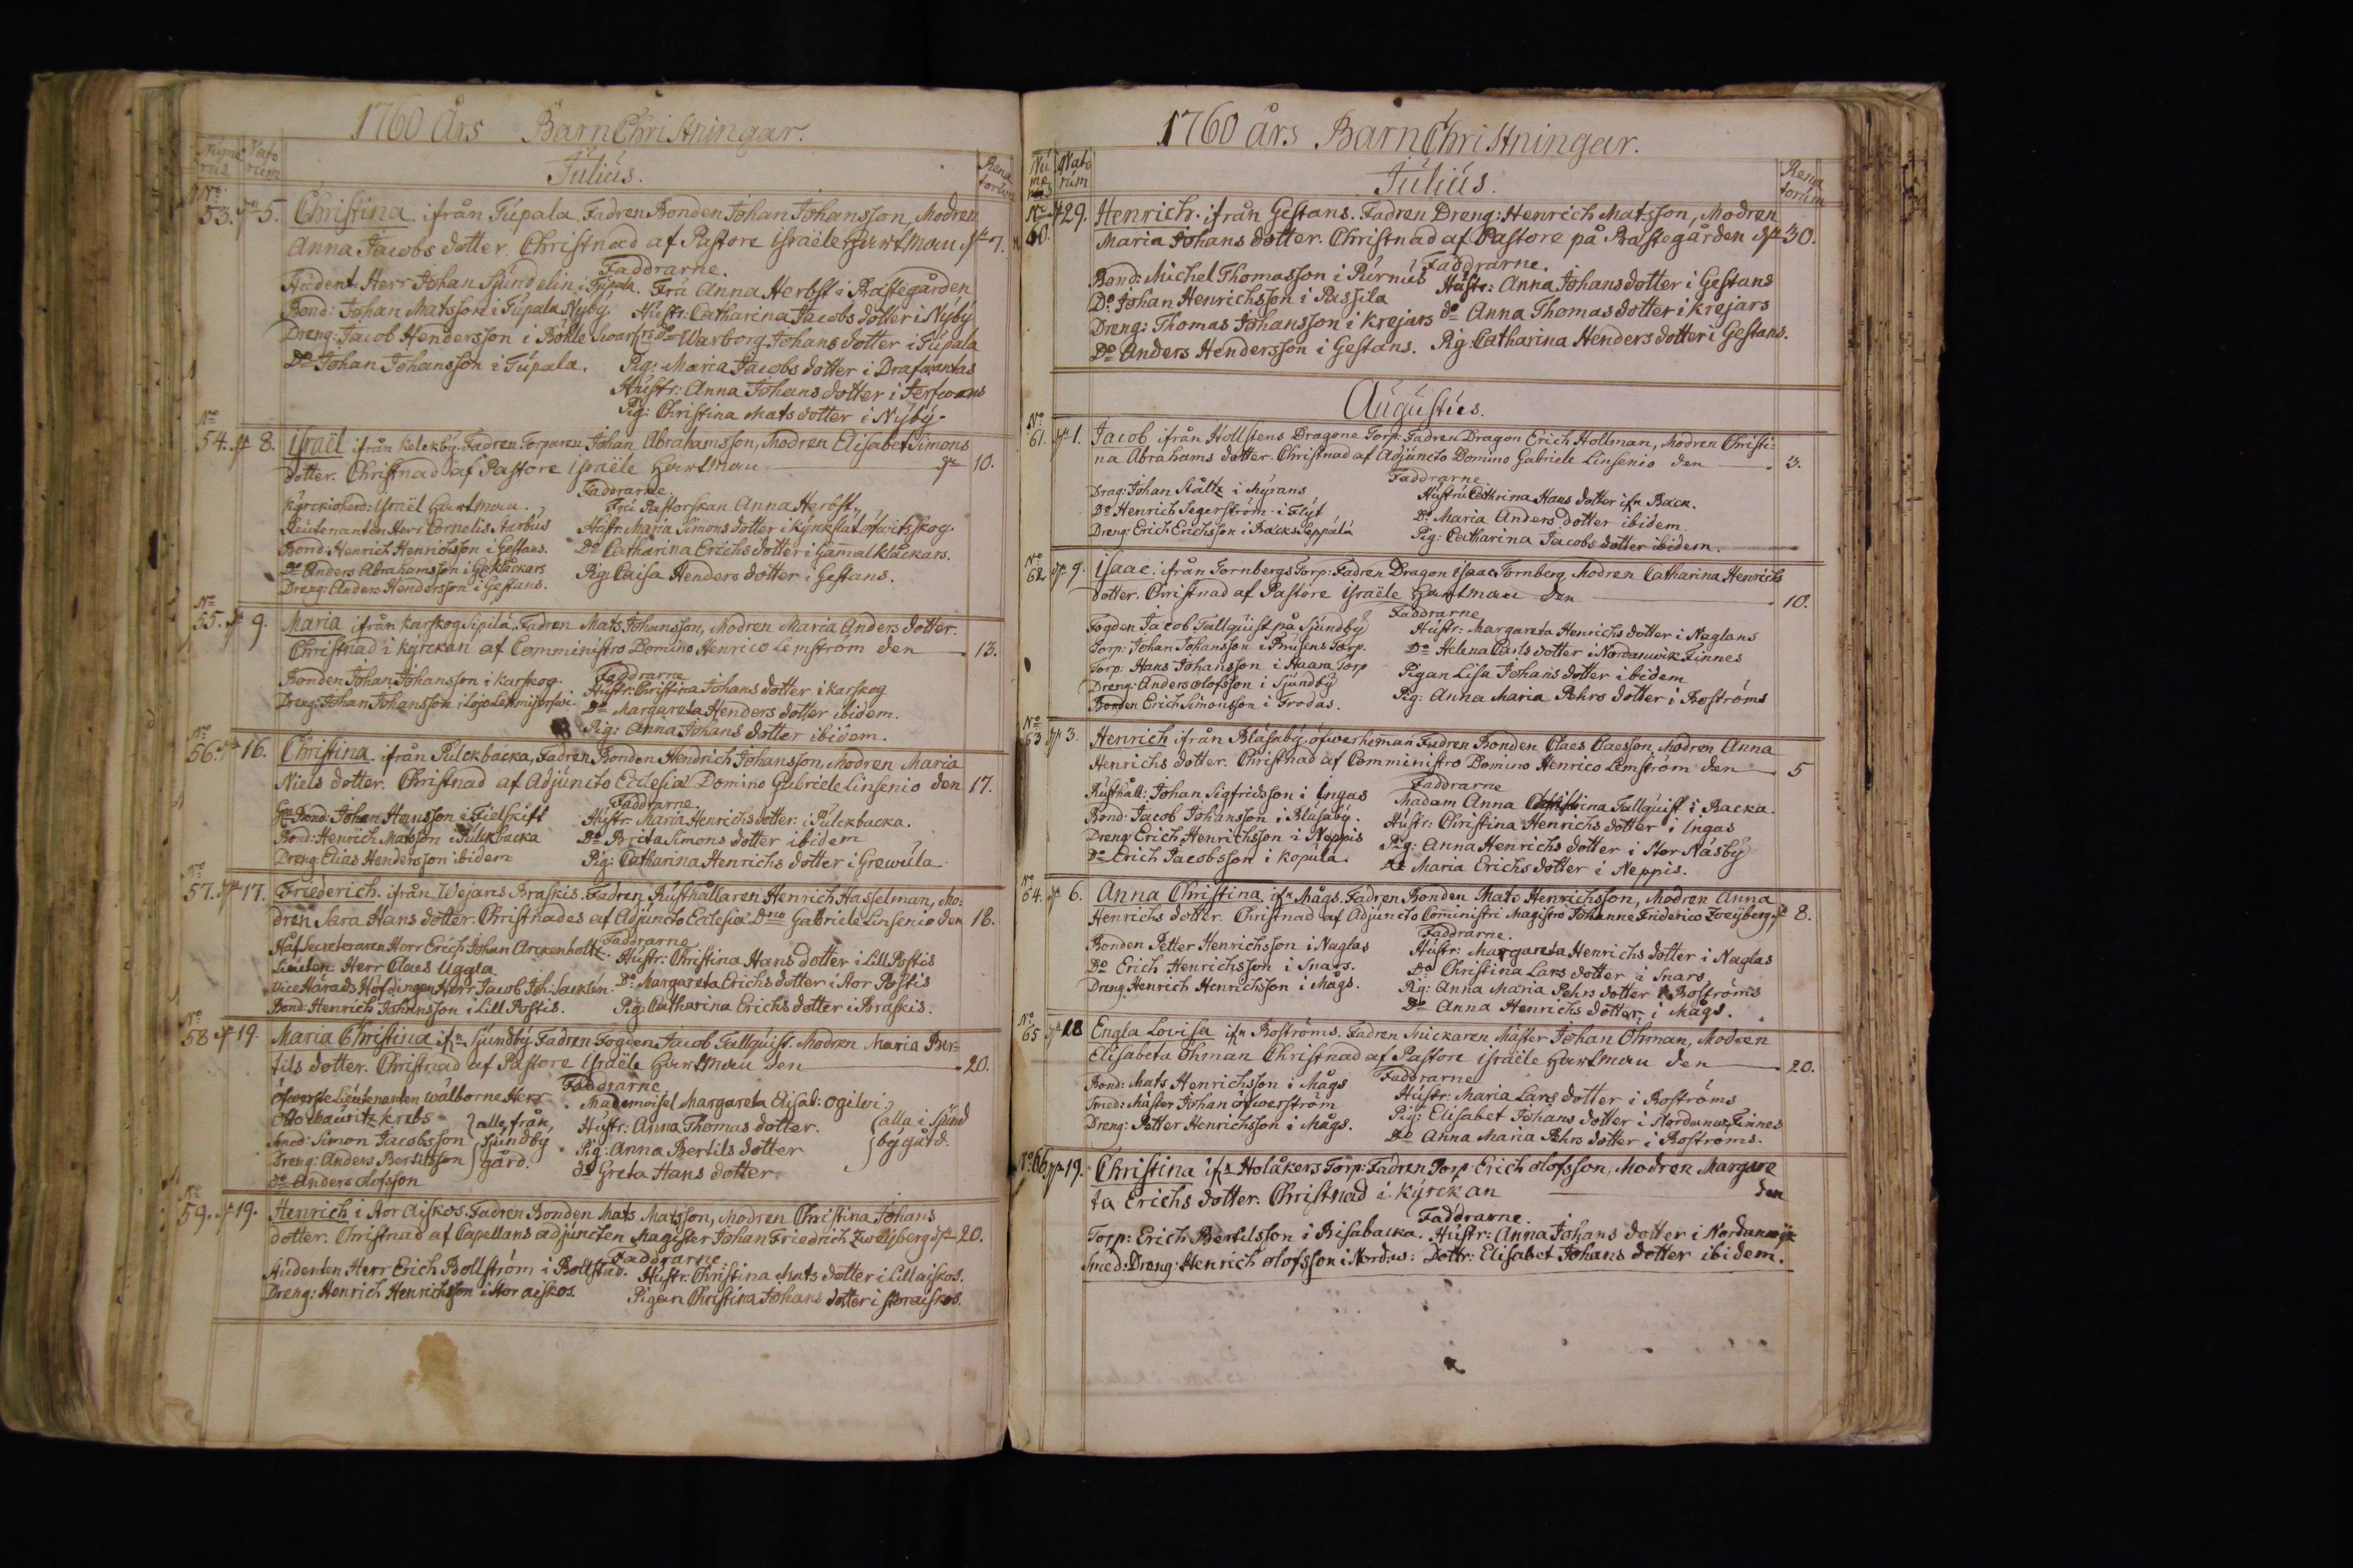 1760 Års BarnChristningar.
Nume rus Nato rum Julius. Rena torum
No 53. 5. Christina. ifrån Tupala. Fadren Bonden Johan Johansson, Modren
Anna Jacobs dotter. Christnad af Pastore Israële Hartman 7.
Faddrarne.
Student. Herr Johan Sjundelin i Tupala. Fru Anna Herbst i Prästegården
Bond: Johan Matsson i Tupala Nyby. Hustr: Catharina Jacobs dotter i Nyby
Dreng: Jacob Hendersson i Böhle Do Warborg Johans dotter i Tupala
Do Johan Johansson i Tupala. Pig: Maria Jacobs dotter i
Hustr: Anna Johans dotter i
Pig: Christina Mats dotter i Nyby.
No 54. 8. Israël ifrån Kelckby. Fadren Torparen Johan Abrahamsson, Modren Elisabet Simons
dotter. Christnad af Pastore Israële Hartman 10.
Faddrarne.
Kyrckioherd: Israël Hartman. Fru Pastorskan Anna Herbst,
Lieutenanten Herr Cornelis Hustr: Maria Simons dotter i
Bond: Henrich Henrichsson i Gestans. Do Catharina Erichs dotter i Gamalklåckars.
Do Anders Abrahamsson i Gaklåckars Pig: Caisa Henders dotter i Gestans.
Dreng: Anders Hendersson i Gestans.
No 55. 9. Maria ifrån Karskog Sipilä. Fadren Mats Johansson, Modren Maria Anders dotter.
Christnad i kyrckan af Comministro Domino Henrico Lemström den 13.
Faddrarne
Bonden Johan Johansson i Karskog. Hustr: Christina Johans dotter i Karskog
Dreng: Johan Johansson i Lojo Do Margareta Henders dotter ibidem.
Pig: Anna Johans dotter ibidem.
No 56. 16. Christina ifrån Pulckbacka, Fadren Bonden Hendrich Johansson, Modren Maria
Niels dotter. Christnad af Adjuncto Ecclesiæ Domino Gabriele Linsenio den 17.
Faddrarne.
Bond: Johan Hansson i Fielskift Hustr: Maria Henrichs dotter i Pulckbacka.
Bond: Henrich Matsson i Pulckbacka Do Brita Simons dotter ibidem
Dreng: Elias Hendersson ibidem Pig: Catharina Henrichs dotter i Grewula.
No 57. 17. Friederich. ifrån Wejans Braskis. Fadren Rusthållaren Henrich Hasselman, Mo:
dren Sara Hans dotter. Christnades af Adjuncto Ecclesiæ Dno Gabriele Linsenio den 18.
Faddrarne
Håf Secreteraren Herr Erich Johan Arckenholtz. Hustr: Christina Hans dotter i Lill Postis
Lieuten: Herr Claes Uggla Do Margareta Erichs dotter i Stor Postis
Vice Härads Höfdingen Herr Jacob Joh: Sacklén. Pig: Catharina Erichs dotter i Braskis.
Bond: Henrich Johansson i Lill Postis.
No 58 19. Maria Christina ifn Sjundby Fadren Fogden Jacob Tallquist. Modren Maria Ber:
tils dotter. Christnad af Pastore Israële Hartman den 20.
Faddrarne
Öfwerste Lieutenanten wälborne Herr Mademoisel Margareta Elisab: Ogilwi
Otto Mauritz Krebs alla från Hustr: Anna Thomas dotter. alla i Sjund
Smed: Simon Jacobsson Sjundby Pig: Anna Bertils dotter by gård.
Dreng: Anders Bertilsson gård. Do Greta Hans dotter
Do Anders Olofsson
No 59. 19. Henrich i Stor Aiskos. Fadren Bonden Mats Matsson, Modren Christina Johans
dotter. Christnad af Capellans adjuncten Magister Johan Friedrich Zweijberg 20.
Faddrarne
Studenten Herr Erich Bollström i Bollstad. Hustr: Christina Mats dotter i Lill aiskos.
Dreng: Henrich Henrichsson i Stor aiskos. Pigan Christina Johans dotter i Storaiskos.
1760 års BarnChristningar.
Nu me rus Nato rum Julius. Rena torum
No 60. 29. Henrich. ifrån Gestans. Fadren Dreng: Henrich Matsson, Modren
Maria Johans dotter. Christnad af Pastore på Prästegården 30.
Faddrarne.
Bond: Michel Thomasson i Purnus Hustr: Anna Johans dotter i Gestans
Do Johan Henrichsson i Passila Do Anna Thomas dotter i Krejars
Dreng: Thomas Johansson i Krejars Pig: Catharina Henders dotter i Gestans.
Do Anders Hendersson i Gestans.
Augustus.
No 61. 1. Jacob ifrån Hollstens Dragone Torp: Fadren Dragon Erich Hollman, Modren Christi:
na Abrahams dotter. Christnad af Adjuncto Domino Gabriele Linsenio den 3.
Faddrarne
Drag: Johan Ståltz i Myrans Hustru Cathrina Hans dotter ifn Back.
Do Henrich Segerström i Flyt Do Maria Anders dotter ibidem.
Dreng: Erich Erichsson i Backs Seppälä Pig: Catharina Jacobs dotter ibidem.
No 62 9. Isaac. ifrån Tornbergs Torp: Fadren Dragon Isaac Tornberg, Modren Catharina Henrichs
dotter. Christnad af Pastore Israële Hartman den 10.
Faddrarne
Fogden Jacob Tallquist på Sjundby Hustr: Margareta Henrichs dotter i Naglans
Torp: Johan Johansson i Prusens Torp. Do Helena Carls dotter i Nordanwik Finnes
Torp: Hans Johansson i Haara Torp Pigan Lisa Johans dotter ibidem
Dreng: Anders Olofsson i Sjundby Pig: Anna Maria Pehrs dotter i Boströms
Bonden Erich Simonsson i Frodas.
No 63 3. Henrich ifrån Blåsaby öfwerheman Fadren Bonden Claes Claesson, Modren Anna
Henrichs dotter. Christnad af Comministro Domino Henrico Lemström den 5
Faddrarne
Rusthåll: Johan Sigfridsson i Ingas Madam Anna Tallquist i Backa.
Bond: Jacob Johansson i Blåsaby. Hustr: Christina Henrichs dotter i Ingas
Dreng: Erich Henrichsson i Neppis Pig: Anna Henrichs dotter i Stor Näsby
Do Erich Jacobsson i Kopula. Do Maria Erichs dotter i Neppis.
No 64. 6. Anna Christina ifn Mågs. Fadren Bonden Mats Henrichsson, Modren Anna
Henrichs dotter. Christnad af Adjuncto Comministri Magistro Johanne Friderico Zweijberg 8.
Faddrarne.
Bonden Petter Henrichsson i Naglas Hustr: Margareta Henrichs dotter i Naglas
Do Erich Henrichsson i Snars. Do Christina Lars dotter i Snars,
Dreng Henrich Henrichsson i Mågs. Pig: Anna Maria Pehrs dotter Boströms
Do Anna Henrichs dotter i Mågs.
No 65 18 Engla Lovisa ifn Boströms. Fadren Snickaren Mäster Johan Öhman, Modren
Elisabeta Öhman Christnad af Pastore Israële Hartman den 20.
Faddrarne
Bond: Mats Henrichsson i Mågs Hustr: Maria Lars dotter i Boströms
Smed: Mäster Johan Öfwerström Pig: Elisabet Johans dotter i Finnes
Dreng: Petter Henrichsson i Mågs. Do Anna Maria Pehrs dotter i Boströms.
No 66 19. Christina ifn Holåkers Torp: Fadren Torp: Erich Olofsson, Modren Margare
ta Erichs dotter. Christnad i Kyrckan den
Faddrarne.
Torp: Erich Bertilsson i Bisabacka. Hustr: Anna Johans dotter i Nordanwijk
Smed: Dreng: Henrich Olofsson i Nord:w: Dottr: Elisabet Johans dotter ibidem.